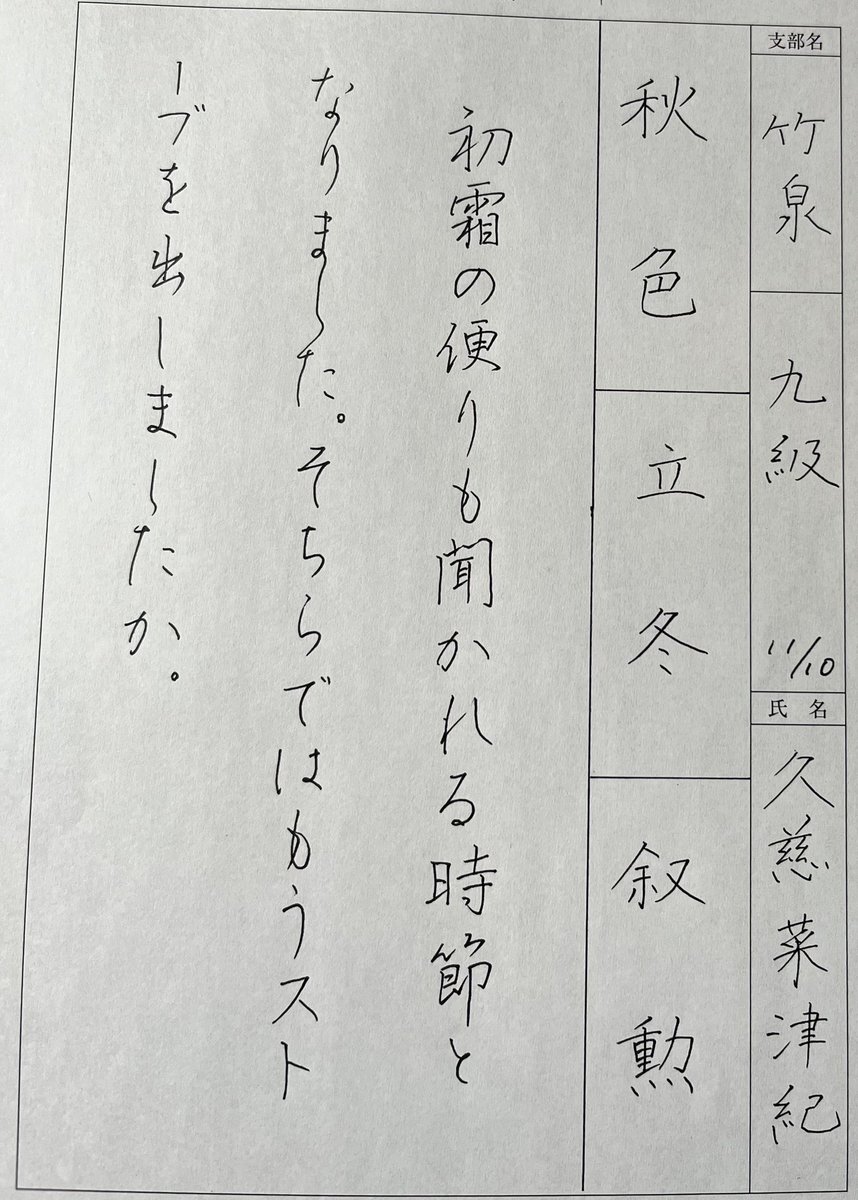 支部名
竹泉
九級
11/10
氏名
久慈菜津紀
秋色
立冬
叙勲
初霜の便りも聞かれる時節と
なりました。そちらではもうスト
ーブを出しましたか。